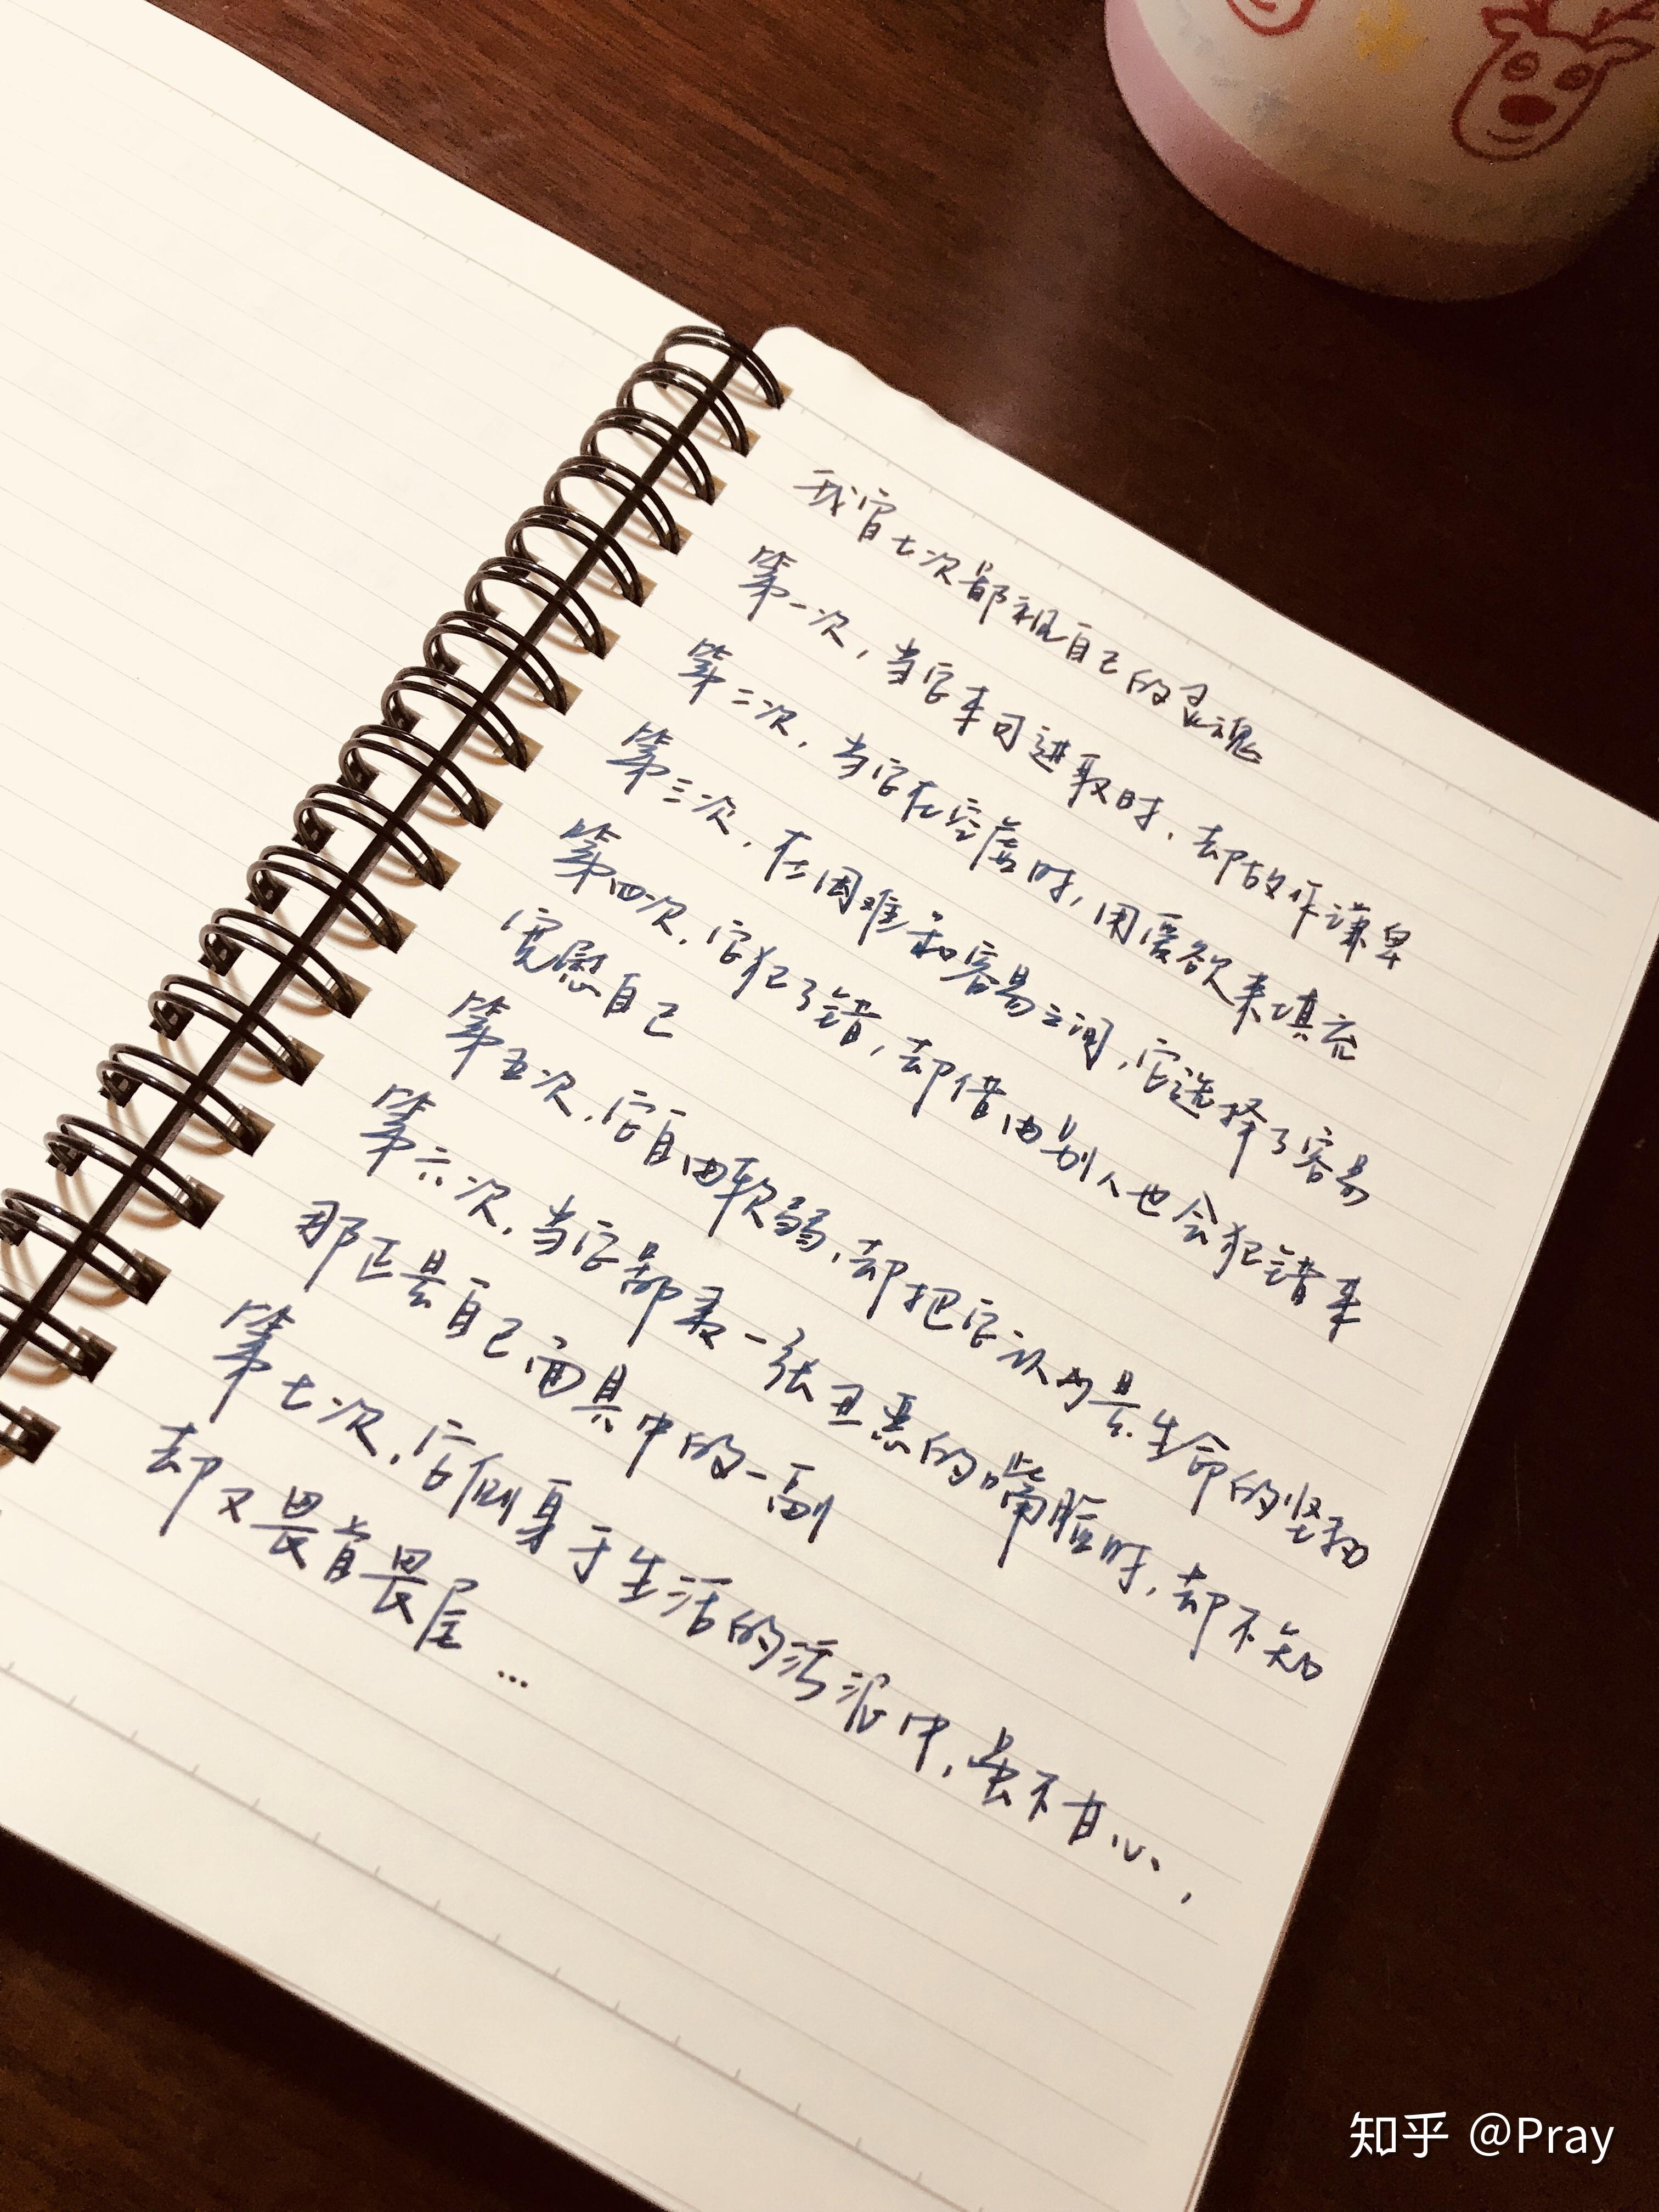 我曾七次鄙视自己的灵魂
第一次，当它本可进取时，却故作谦卑
第二次，当它在空虚时，用爱欲来填充
第三次，在困难和容易之间，它选择了容易
第四次，它犯了错，却借由别人也会犯错来
宽慰自己
第五次，它自由软弱，却把它认为是生命的坚韧
第六次，当它鄙夷一张丑恶的嘴脸时，却不知
那正是自己面具中的一副
第七次，它侧身于生活的污泥中，虽不甘心，
却又畏首畏尾...
知乎 @Pray